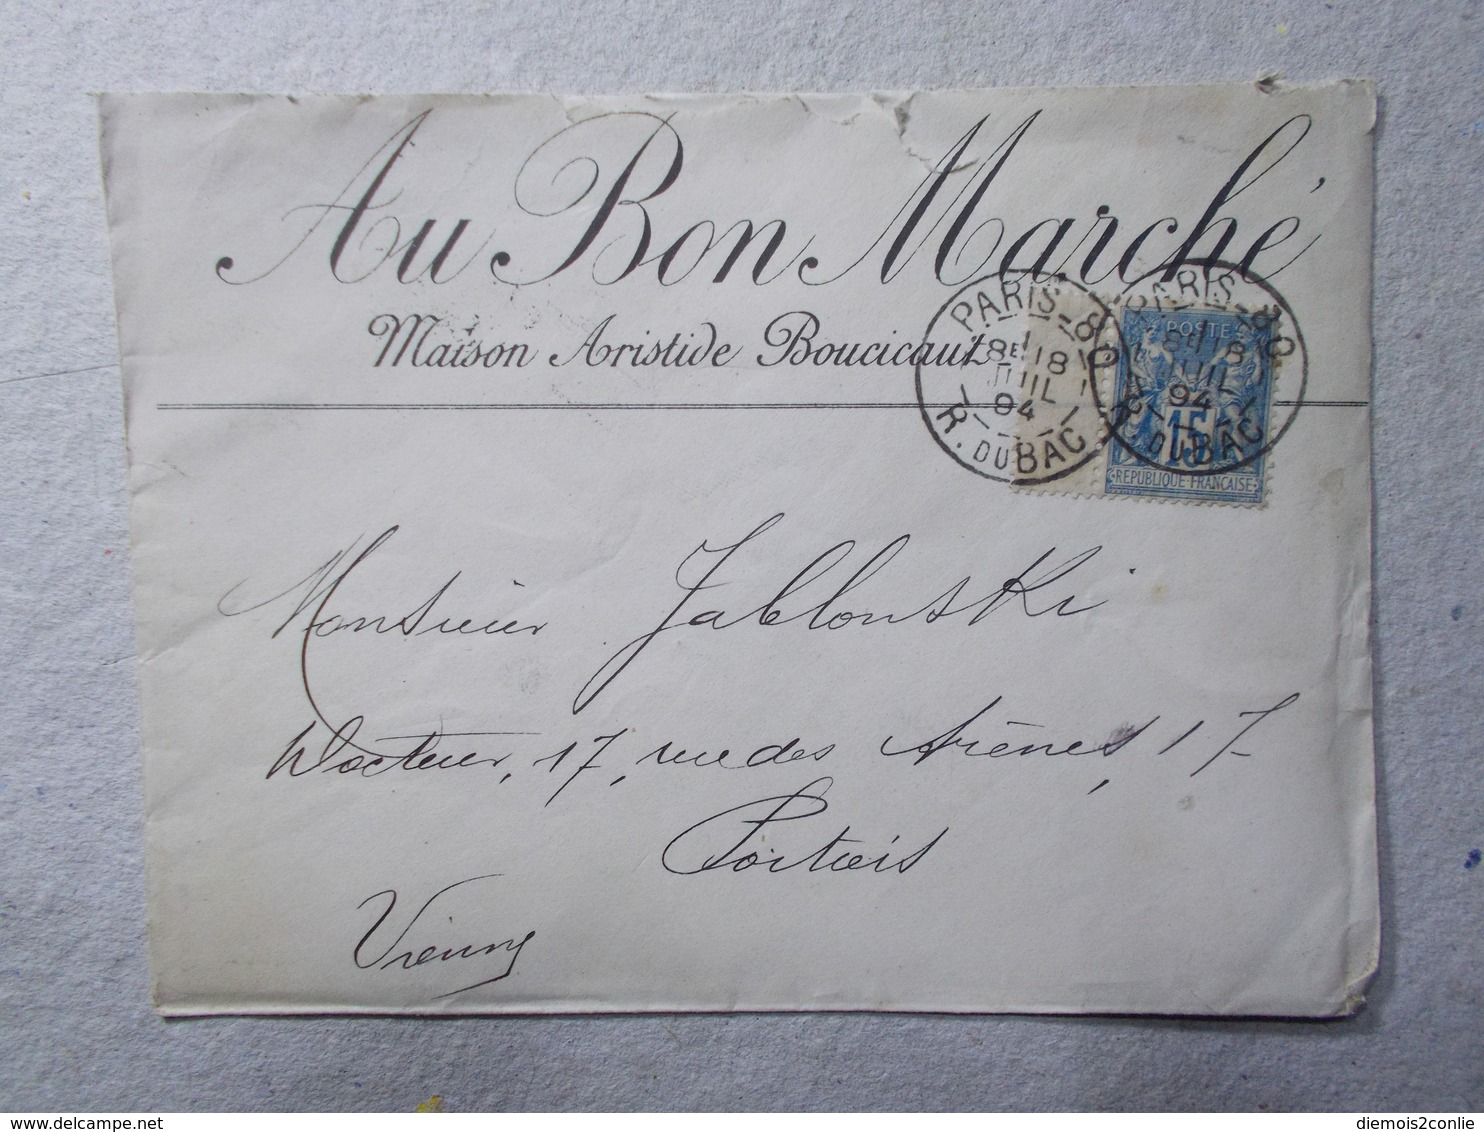 Au Bon Marché
Maison Aristide Boucicaut
PARIS-80
8E 18
JUIL
94
R. DU BAC
PARIS-80
8E 18
JUIL
94
R. DU BAC
POSTES
15
REPUBLIQUE FRANCAISE
Monsieur Jablonski
Docteur, 17, rue des Arènes, 17
Poitiers
Vienne
delcampe.net
diemois2conlie